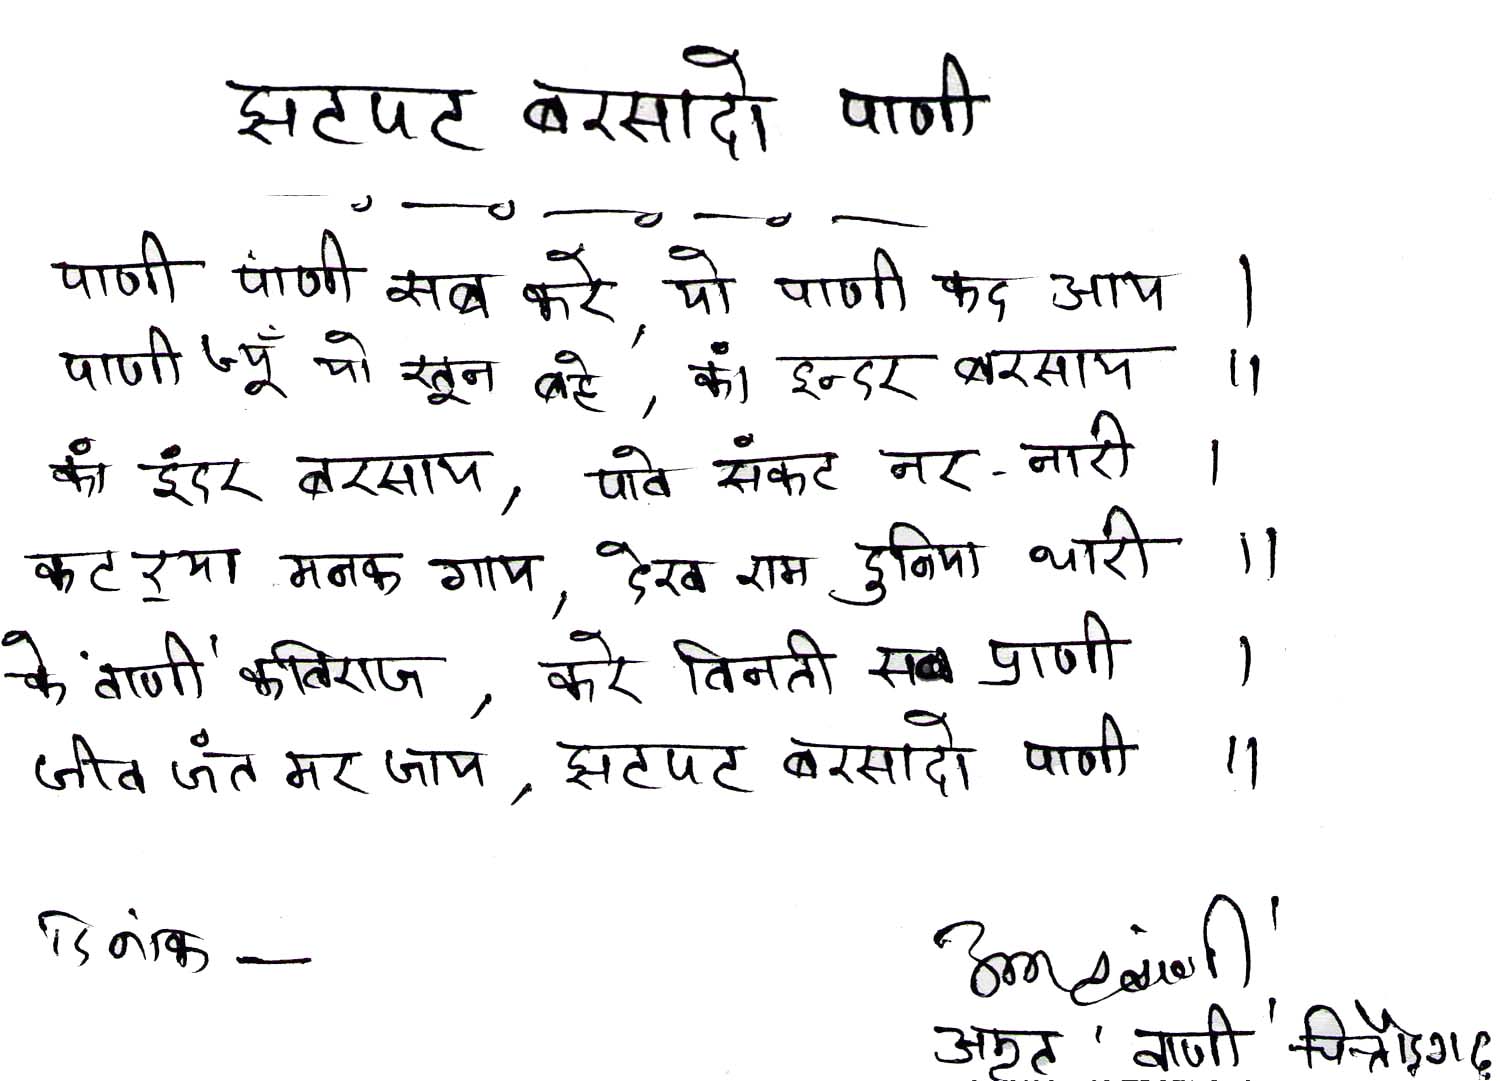 झटपट बरसादो पाणी
पाणी पाणी सब करे, यो पाणी कद आय ।
पाणी ज्यूँ यो खून बहे, कां इन्दर बरसाय ॥
कां इंदर बरसाय, पावे संकट नर-नारी ।
कट रया मनक गाय, देख राम दुनिया थारी ॥
के 'वाणी' कविराज, करे विनती सब प्राणी ।
जीव जंत मर जाय, झटपट बरसादो पाणी ॥
दिनांक —
अमृत 'वाणी'
अमृत 'वाणी' चित्तौड़गढ़